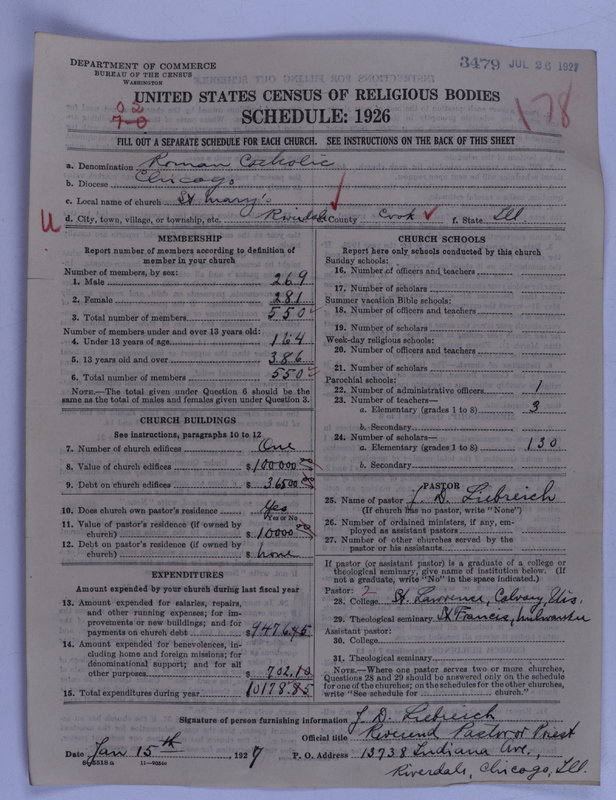 DEPARTMENT OF COMMERCE
BUREAU OF THE CENSUS
WASHINGTON
3479 JUL 26 1927
0 2
7-0
178
UNITED STATES CENSUS OF RELIGIOUS BODIES
SCHEDULE: 1926
FILL OUT A SEPARATE SCHEDULE FOR EACH CHURCH. SEE INSTRUCTIONS ON THE BACK OF THIS SHEET
a. Denomination Roman Catholic
b. Diocese Chicago
c. Local name of church St Mary's
d. City, town, village, or township, etc. Riverdale County Cook f. State Ill.
MEMBERSHIP
Report number of members according to definition of member in your church
Number of members, by sex:
1. Male 269
2. Female 281
3. Total number of members 550
Number of members under and over 13 years old:
4. Under 13 years of age 164
5. 13 years old and over 386
6. Total number of members 550
NOTE.—The total given under Question 6 should be the same as the total of males and females given under Question 3.
CHURCH BUILDINGS
See instructions, paragraphs 10 to 12
7. Number of church edifices One
8. Value of church edifices $100000.00
9. Debt on church edifices $36500.00
10. Does church own pastor's residence? Yes
Yes or No
11. Value of pastor's residence (if owned by church) $10000.00
12. Debt on pastor's residence (if owned by church) $none
EXPENDITURES
Amount expended by your church during last fiscal year
13. Amount expended for salaries, repairs, and other running expenses; for improvements or new buildings; and for payments on church debt $9476.75
14. Amount expended for benevolences, including home and foreign missions; for denominational support; and for all other purposes $702.10
15. Total expenditures during year 10178.85
CHURCH SCHOOLS
Report here only schools conducted by this church
Sunday schools:
16. Number of officers and teachers
17. Number of scholars
Summer vacation Bible schools:
18. Number of officers and teachers
19. Number of scholars
Week-day religious schools:
20. Number of officers and teachers
21. Number of scholars
Parochial schools:
22. Number of administrative officers 1
23. Number of teachers—
a. Elementary (grades 1 to 8) 3
b. Secondary
24. Number of scholars—
a. Elementary (grades 1 to 8) 130
b. Secondary
PASTOR
25. Name of pastor J. D. Liebreich
(If church has no pastor, write "None")
26. Number of ordained ministers, if any, employed as assistant pastors
27. Number of other churches served by the pastor or his assistants
If pastor (or assistant pastor) is a graduate of a college or theological seminary, give name of institution below. (If not a graduate, write "No" in the space indicated.)
Pastor: 2
28. College St. Lawrence, Calvary Wis.
29. Theological seminary St Francis, Milwaukee
Assistant pastor:
30. College
31. Theological seminary
NOTE.—Where one pastor serves two or more churches, Questions 28 and 29 should be answered only on the schedule for one of the churches; on the schedules for the other churches, write "See schedule for church."
Signature of person furnishing information J. D. Liebreich
Official title Reverend Pastor or Priest
Date Jan 15th, 1927 P. O. Address 13738 Indiana Ave.,
Riverdale, Chicago, Ill.